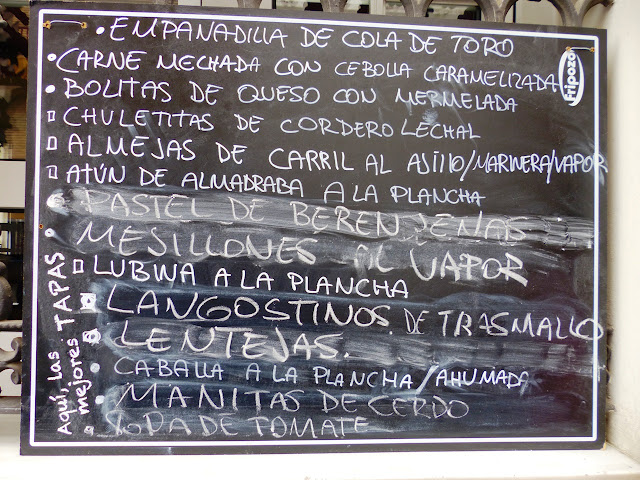 EMPANADILLA DE COLA DE TORO
CARNE MECHADA CON CEBOLLA CARAMELIZADA
BOLITAS DE QUESO CON MERMELADA
CHULETITAS DE CORDERO LECHAL
ALMEJAS DE CARRIL AL AJILLO/MARINERA/VAPOR
ATÚN DE ALMADRABA A LA PLANCHA
PASTEL DE BERENJENAS
MESILLONES AL VAPOR
LUBINA A LA PLANCHA
LANGOSTINOS DE TRASMALLO
LENTEJAS.
CABALLA A LA PLANCHA/AHUMADA
MANITAS DE CERDO
SOPA DE TOMATE
Aquí, las
mejores TAPAS
Fripozo